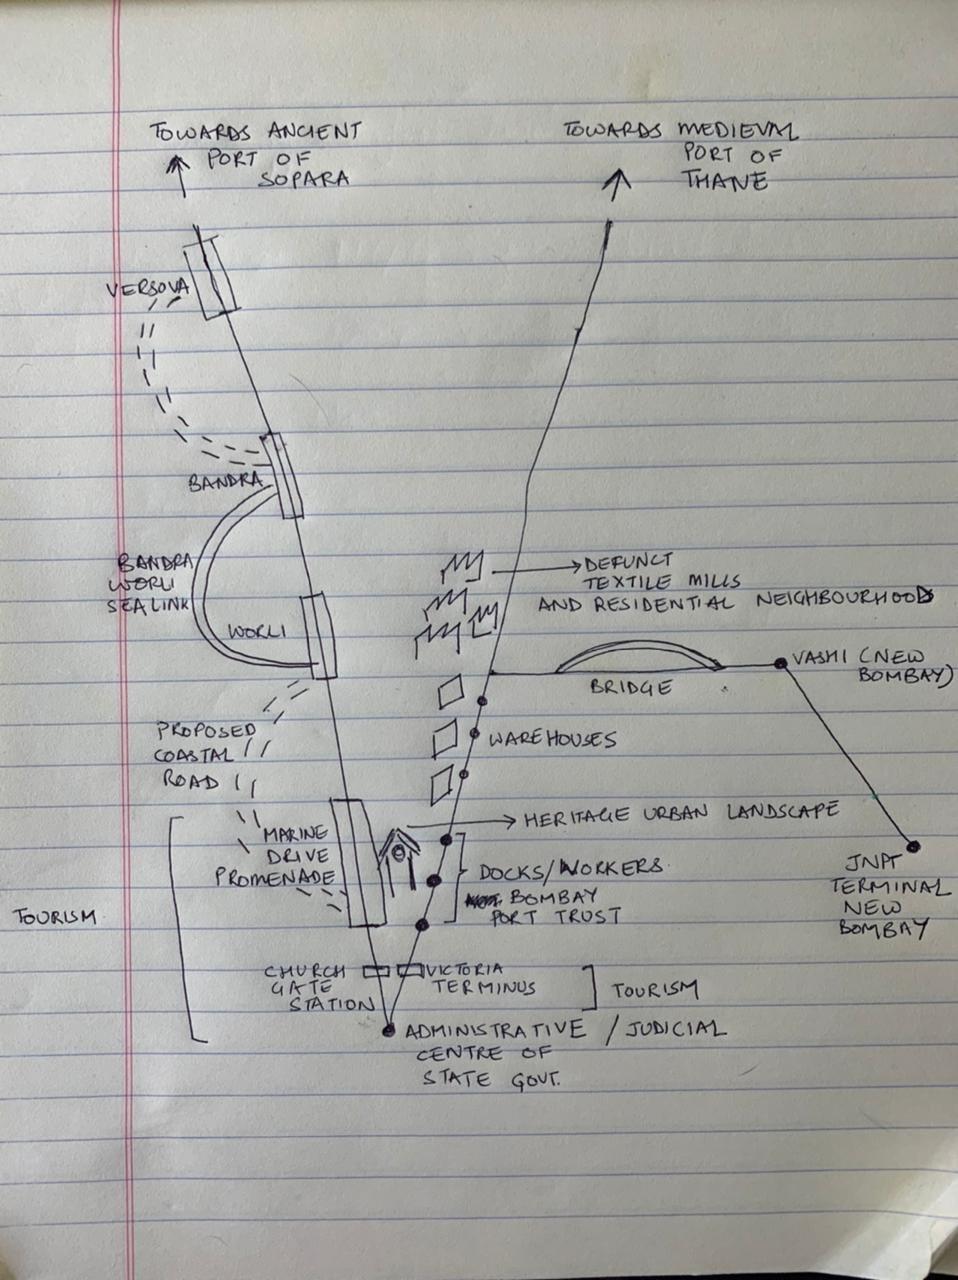 TOWARDS ANCIENT
PORT OF
SOPARA
TOWARDS MEDIEVAL
PORT OF
THANE
VERSOVA
BANDRA
BANDRA
WORLI
SEALINK
WORLI
DEFUNCT
TEXTILE MILLS
AND RESIDENTIAL NEIGHBOURHOODS
VASHI (NEW
BOMBAY)
BRIDGE
PROPOSED
COASTAL
ROAD
WAREHOUSES
HERITAGE URBAN LANDSCAPE
MARINE
DRIVE
PROMENADE
DOCKS/WORKERS
BOMBAY
PORT TRUST
JNPT
TERMINAL
NEW
BOMBAY
TOURISM
CHURCH
GATE
STATION
VICTORIA
TERMINUS
TOURISM
ADMINISTRATIVE / JUDICIAL
CENTRE OF
STATE GOVT.